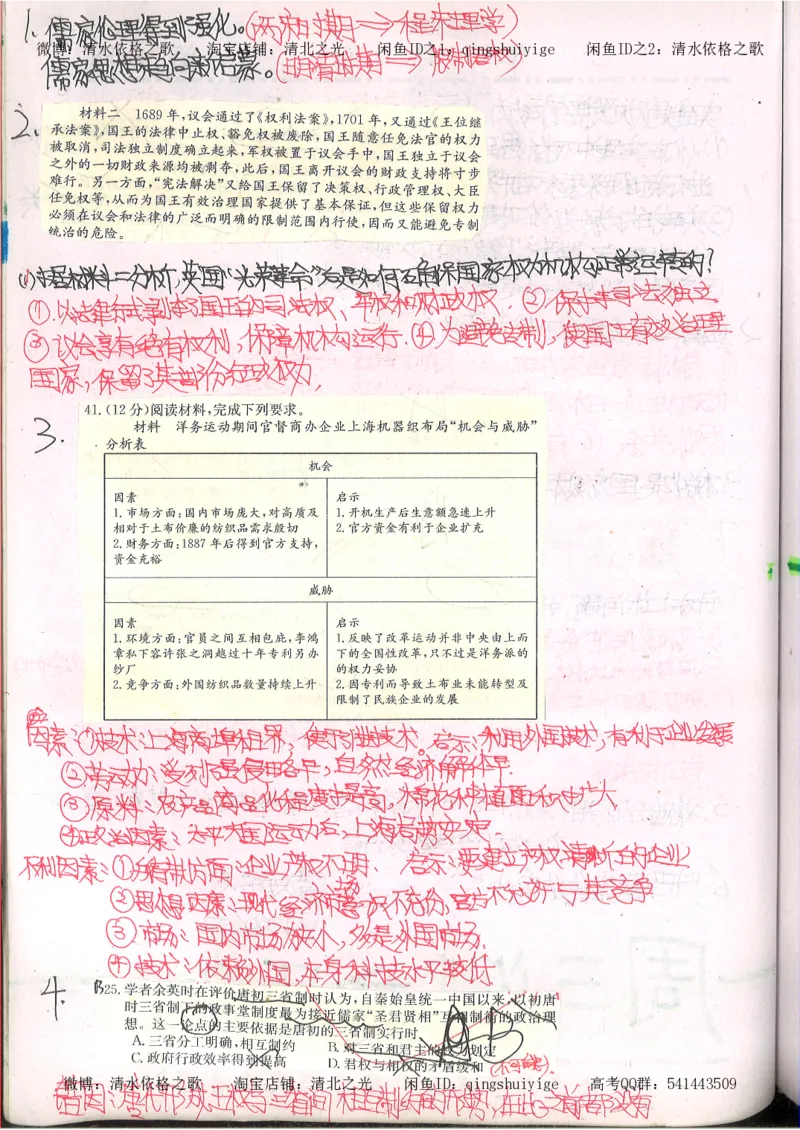 1. 儒家伦理得到强化。(两宋时期⇒程朱理学)
微博：清水依格之歌 淘宝店铺：清北之光 闲鱼ID之1：qingshuiyige 闲鱼ID之2：清水依格之歌
儒家思想走向 启蒙。(明清时期⇒限制君权)
2.
材料二 1689年，议会通过了《权利法案》，1701年，又通过《王位继
承法案》，国王的法律中止权、豁免权被废除，国王随意任免法官的权力
被取消，司法独立制度确立起来，军权被置于议会手中，国王独立于议会
之外的一切财政来源均被剥夺，此后，国王离开议会的财政支持将寸步
难行。另一方面，“宪法解决”又给国王保留了决策权、行政管理权、大臣
任免权等，从而为国王有效治理国家提供了基本保证，但这些保留权力
必须在议会和法律的广泛而明确的限制范围内行使，因而又能避免专制
统治的危险。
(1)据材料二分析，英国“光荣革命”后是如何确保国家权力机构正常运转的？
①.以法律形式剥夺了国王的司法权、军权和财政权. ②保护司法独立
③议会享有绝对权利，保障机构运行.④为避免专制，使国王有效治理
国家，保留了其部分行政权力.
3.
41.(12分)阅读材料，完成下列要求。
材料 洋务运动期间官督商办企业上海机器织布局“机会与威胁”
分析表
机会
因素
1.市场方面：国内市场庞大，对高质及
相对于土布价廉的纺织品需求殷切
2.财务方面：1887年后得到官方支持，
资金充裕
启示
1.开机生产后生意额急速上升
2.官方资金有利于企业扩充
威胁
因素
1.环境方面：官员之间互相包庇，李鸿
章私下容许张之洞越过十年专利另办
纱厂
2.竞争方面：外国纺织品数量持续上升
启示
1.反映了改革运动并非中央由上而
下的全国性改革，只不过是洋务派的
的权力妥协
2.因专利而导致土布业未能转型及
限制了民族企业的发展
因素：①技术：上海商埠租界，便于引进技术。启示：利用外国技术，有利于企业发展
②劳动力：受列强侵略早，自然经济解体早.
③原料：农产品商品化程度提高，棉花种植面积扩大
④政治因素：太平天国运动后，上海局势安定.
不利因素：①体制方面：企业产权不明、 启示：要建立产权清晰的企业
②思想因素：现代经济市场意识不充份，官方不允许与其竞争
③市场：国内市场狭小，多是外国市场.
④技术：依赖外国，本身科技水平较低
4.
B25.学者余英时在评价唐初三省制时认为，自秦始皇统一中国以来，以初唐
时三省制下的政事堂制度最为接近儒家“圣君贤相”互相制衡的政治理
想。这一论点的主要依据是唐初的三省制实行时
A.三省分工明确，相互制约 B.对三省和君主的权力划定
C.政府行政效率得到提高 D.君权与相权的矛盾缓和 (不可能).
微博：清水依格之歌 淘宝店铺：清北之光 闲鱼ID：qingshuiyige 高考QQ群：541443509
错因：唐代形成王权与三省间相互制约的形势，在此之前都没有